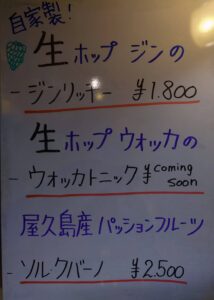 自家製!
生ホップ ジンの
- ジンリッキー ¥1.800
生ホップ ウォッカの
- ウォッカトニック ¥coming soon
屋久島産パッションフルーツ
- ソル・クバーノ ¥2.500